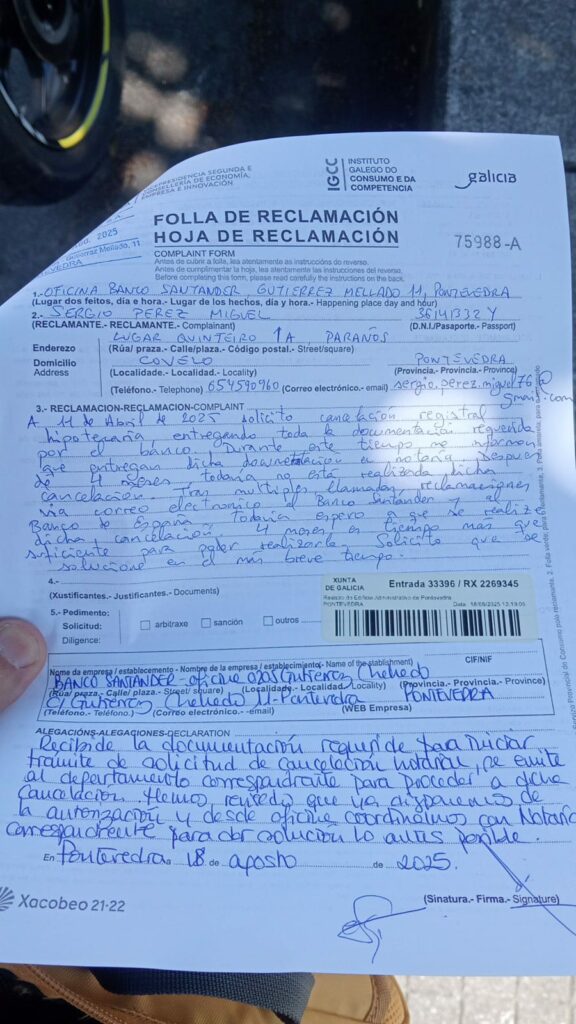 CEPRESIDENCIA SEGUNDA E
CONSELLERÍA DE ECONOMÍA,
E INNOVACIÓN
IGCC INSTITUTO
GALEGO DO
CONSUMO E DA
COMPETENCIA
galicia
2025
Gutierrez Mellado, 11,
FOLLA DE RECLAMACIÓN
HOJA DE RECLAMACIÓN
75988-A
COMPLAINT FORM
Antes de cubrir a folla, lea atentamente as instruccións do reverso.
Antes de cumplimentar la hoja, lea atentamente las instrucciones del reverso.
Before completing this form, please read carefully the instructions on the back.
1.- OFICINA BANCO SANTANDER, GUTIERREZ MELLADO 11, PONTEVEDRA
(Lugar dos feitos, día e hora.- Lugar de los hechos, día y hora.- Happening place day and hour)
2.- SERGIO PEREZ MIGUEL 36141332Y
(RECLAMANTE.- RECLAMANTE.- Complainant) (D.N.I./Pasaporte.- Passport)
LUGAR QUINTEIRO 1A PARAÑOS
Enderezo (Rúa/ praza.- Calle/plaza.- Código postal.- Street/square)
Domicilio COVELO PONTEVEDRA
Address (Localidade.- Localidad.- Locality) (Provincia.- Provincia.- Province)
(Teléfono.- Telephone) 654590960 (Correo electrónico.- email) sergio.perez.miguel76@
gmail.com
3.- RECLAMACION-RECLAMACION-COMPLAINT
A 11 de Abril de 2025 solicito cancelacion registral
hipotecaria, entregando toda la documentacion requerida
por el banco. Durante este tiempo me informan
que entregan dicha documentacion en notaría. Despues
de 4 meses todavia no está realizada dicha
cancelacion. Tras multiples llamadas, reclamaciones
via correo electronico al Banco Santander y al
Banco de España todavia espero a que se realize
dicha cancelación. 4 meses es tiempo mas que
suficiente para poder realizarla. Solicito que se
solucione en el mas breve tiempo.
4.-
(Xustificantes.- Justificantes.- Documents)
XUNTA
DE GALICIA
Entrada 33396 / RX 2269345
Rexistro do Edificio Administrativo de Pontevedra
PONTEVEDRA
5.- Pedimento:
Solicitud: arbitraxe sanción outros
Diligence:
Nome da empresa / establecemento - Nombre de la empresa / establecimiento- Name of the stablishment) CIF/NIF
BANCO SANTANDER - oficina 0205 Gutierrez
(Rúa/ praza.- Calle/ plaza.- Street/ square) (Localidade.- Localidad.- Locality) (Provincia.- Provincia.- Province)
C/ Gutierrez 11-Pontevedra PONTEVEDRA
(Teléfono.- Teléfono.) (Correo electrónico.- -email) (WEB Empresa)
ALEGACIÓNS-ALEGACIONES-DECLARATION
Recibida la documentación requerida para iniciar
trámite de solicitud de cancelación notarial, se emite
al departamento correspondiente para proceder a dicha
cancelación. Hemos revisado que ya disponemos de
la autorización y desde oficina coordinamos con Notaría
correspondiente para dar solución lo antes posible.
En Pontevedra a 18 de agosto de 2025.
(Sinatura.- Firma.- Signature)
Xacobeo 21·22